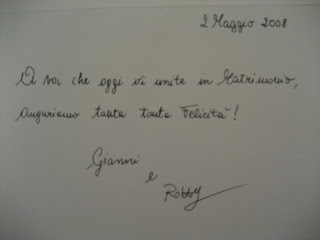 2 Maggio 2008
A voi che oggi vi unite in Matrimonio,
auguriamo tanta tanta Felicità!
Gianni
e
Robby